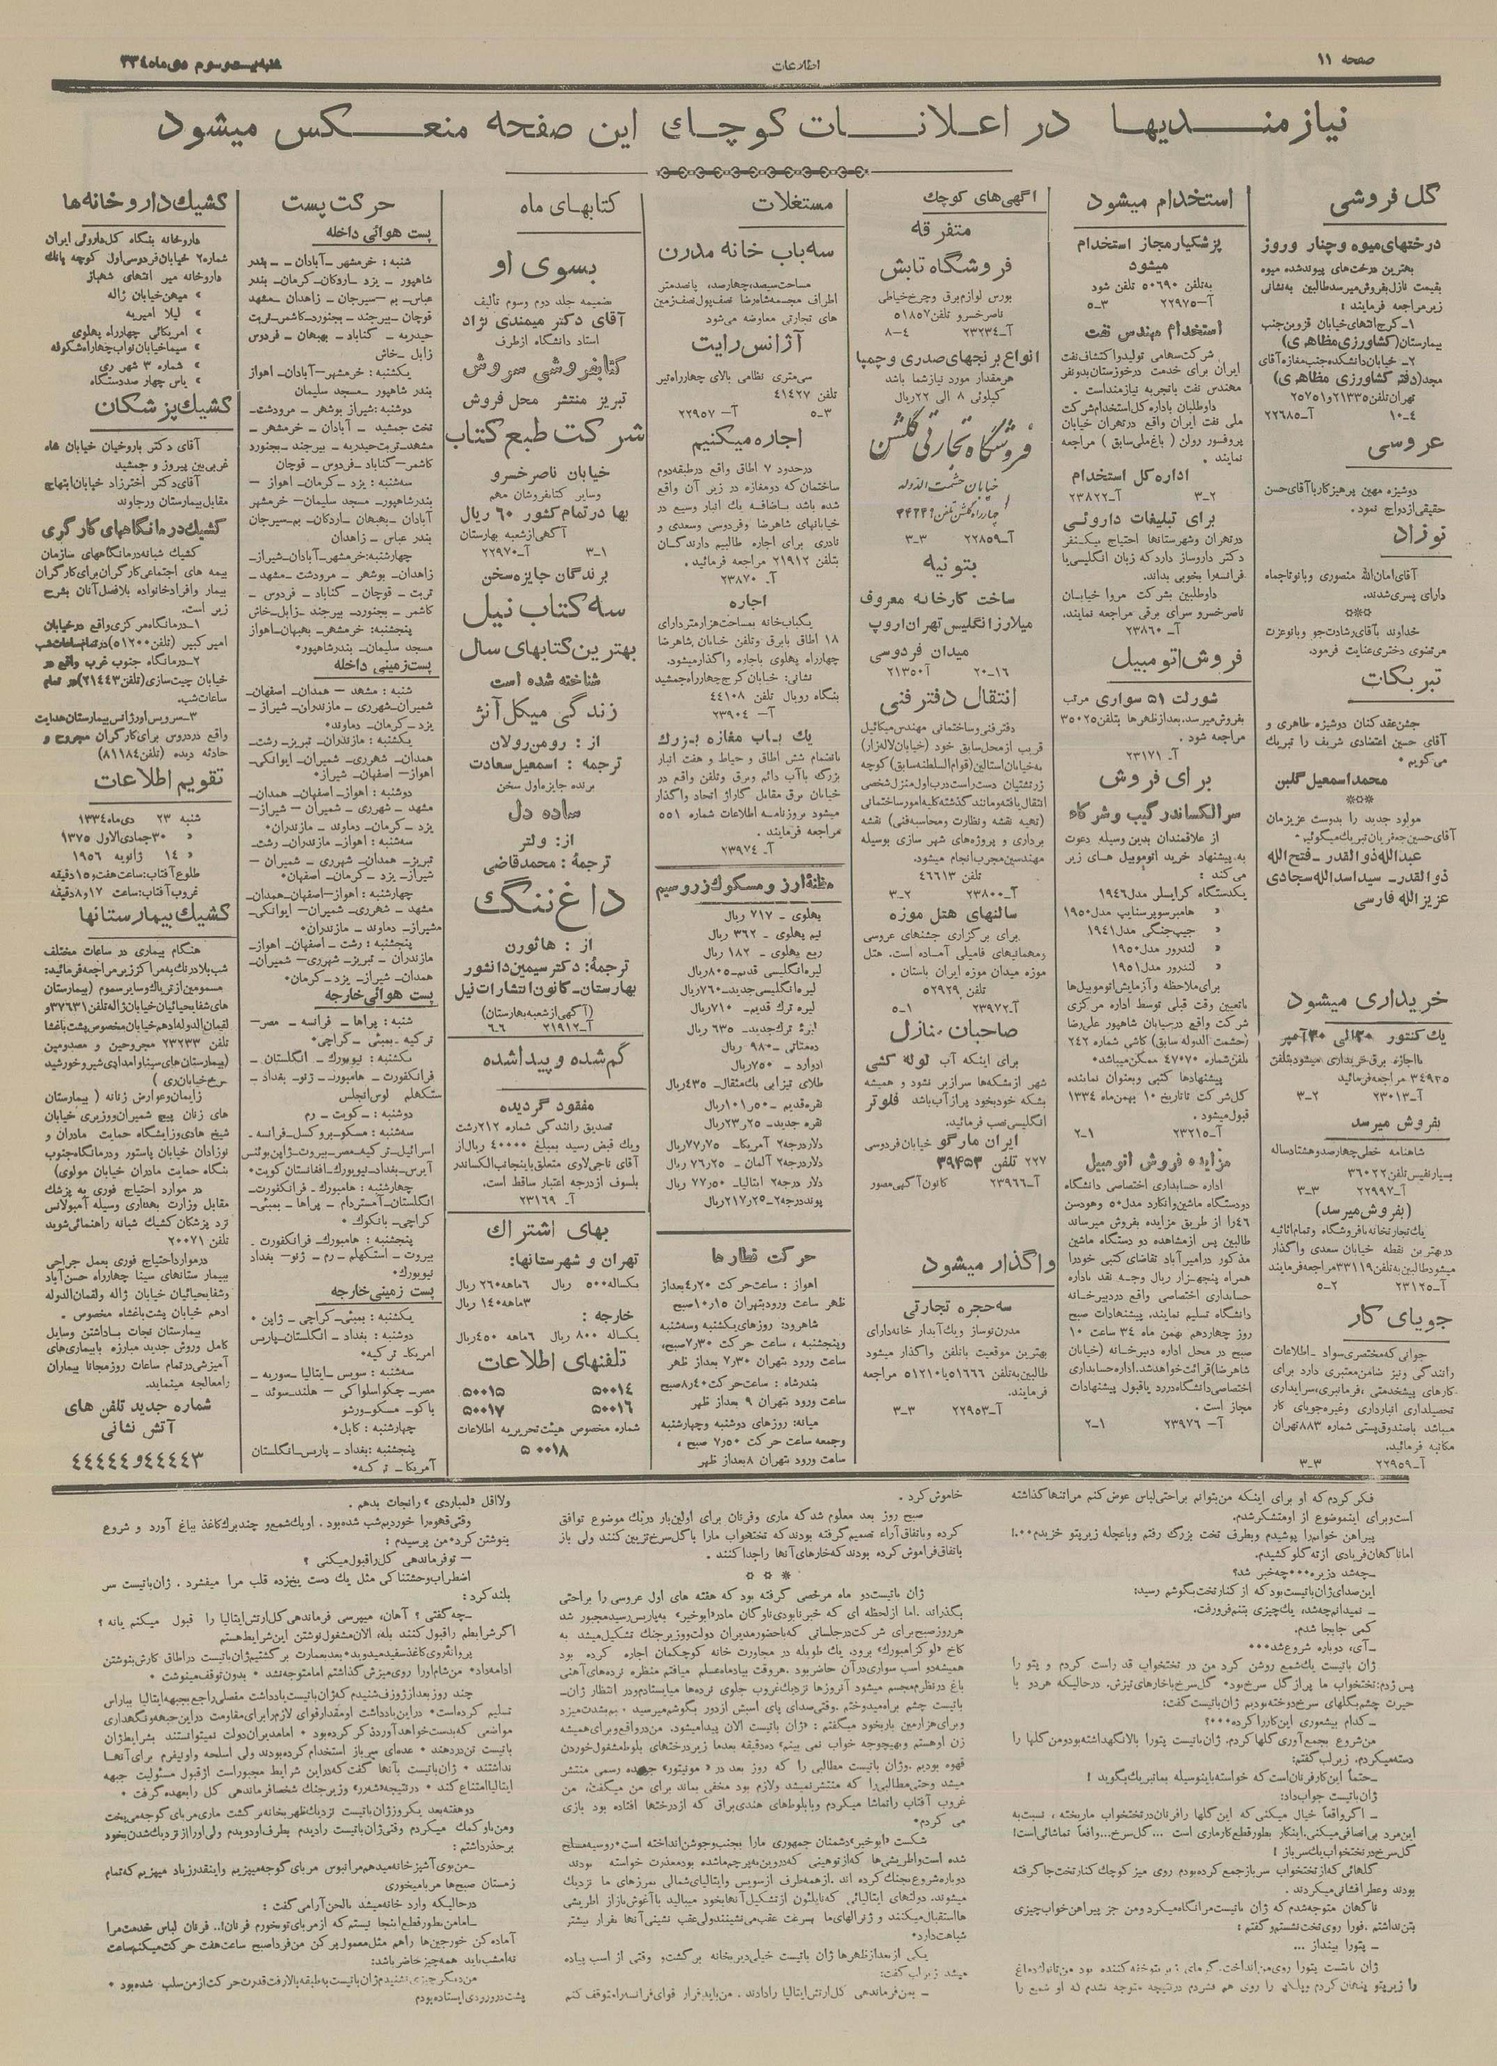 صفحه ۱۱
اطلاعات
شنبه بیست و سوم دی ماه ۳۳٤
نیازمندیها در اعلانات کوچک این صفحه منعکس میشود
گل فروشی
درختهای میوه و چنار و روز
بهترین درخت‌های پیوند شده میوه
بقیمت نازل بفروش میرسد طالبین به نشانی
زیر مراجعه فرمایند :
۱ـ کرج انتهای خیابان قزوین جنب
بیمارستان (کشاورزی مظاهری)
۲ـ خیابان دانشکده جنب مغازه آقای
مجد (دفتر کشاورزی مظاهری)
تهران تلفن ۲۱۳۳۵ و ۲۵۷۵۱
۴ـ۱۰ آـ۲۲۶۸۵
عروسی
دوشیزه مهین پرهیزکار با آقای حسن
حقیقی ازدواج نمود.
نوزاد
آقای امان‌الله منصوری و بانو تاجماه
دارای پسری شدند.
خداوند بآقای رشادت جو و بانو عزت
مرتضوی دختری عنایت فرمود.
تبریکات
جشن عقدکنان دوشیزه طاهری و
آقای حسین اعتضادی شریف را تبریک
می‌گویم.
محمد اسمعیل گلبن
مولود جدید را بدوست عزیزمان
آقای حسین جه قربان تبریک میگوئیم.
عبدالله ذوالقدر ـ فتح‌الله
ذوالقدر ـ سید اسدالله سجادی
عزیزالله فارسی
خریداری میشود
یک کنتور ۲۰ الی ۳۰ آمپر
با اجازه برق خریداری میشود بتلفن
۳۴۹۲۵ مراجعه فرمائید
آـ۲۳۰۱۳ ۲ـ۳
بفروش میرسد
شاهنامه خطی چهارصد و هشتاد ساله
بسیار نفیس تلفن ۳۶۰۲۲
آـ۲۲۹۹۷ ۳ـ۳
(بفروش میرسد)
یک تجارتخانه با فروشگاه و تمام اثاثیه
در بهترین نقطه خیابان سعدی واگذار
میشود طالبین به تلفن ۳۳۱۱۹ مراجعه فرمایند
آـ۲۳۱۲۵ ۲ـ۵
جویای کار
جوانی که مختصری سواد ـ اطلاعات
رانندگی و نیز ضامن معتبری دارد برای
کارهای پیشخدمتی ، فرمانبری، سرایداری
تحصیلداری انبارداری وغیره جویای کار
میباشد با صندوق پستی شماره ۸۸۳ تهران
مکاتبه فرمائید.
آـ۲۲۹۵۹ ۳ـ۳
استخدام میشود
پزشکیار مجاز استخدام
میشود
به تلفن ۵۰۶۹۰ تلفن شود
آـ ۲۲۹۷۵ ۳ـ۵
استخدام مهندس نفت
شرکت سهامی تولید و اکتشاف نفت
ایران برای خدمت در خوزستان بدو نفر
مهندس نفت با تجربه نیازمند است .
داوطلبان باداره کل استخدام شرکت
ملی نفت ایران واقع در تهران خیابان
پروفسور رولن ( باغ ملی سابق ) مراجعه
نمایند .
اداره کل استخدام
۲ـ۳ آـ۲۳۸۲۲
برای تبلیغات داروئی
در تهران و شهرستانها احتیاج بیک نفر
دکتر داروساز دارد که زبان انگلیسی یا
فرانسه را بخوبی بداند.
داوطلبین بشرکت مروا خیابان
ناصر خسرو سرای برقی مراجعه نمایند.
آـ ۲۳۸۶۰
فروش اتومبیل
شورلت ۵۱ سواری مرتب
بفروش میرسد. بعد از ظهرها بتلفن ۳۵۰۲۵
مراجعه شود .
آـ ۲۳۱۷۱
برای فروش
سر الکساندر گیب و شرکاه
از علاقمندان بدین وسیله دعوت
به پیشنهاد خرید اتوموبیل های زیر
می‌کند :
یکدستگاه کرایسلر مدل ۱۹۴۶
» هامبر سوپر سنایپ مدل ۱۹۵۰
» جیپ جنگی مدل ۱۹۴۱
» لندرور مدل ۱۹۵۰
» لندرور مدل ۱۹۵۱
برای ملاحظه و آزمایش اتوموبیل‌ها
باتعیین وقت قبلی توسط اداره مرکزی
شرکت واقع در خیابان شاهپور علی‌رضا
(حشمت الدوله سابق) کاشی شماره ۲۴۲
تلفن شماره ۴۷۰۷۰ ممکن میباشد.
پیشنهادها کتبی و بعنوان نماینده
کل شرکت تا تاریخ ۱۰ بهمن ماه ۱۳۳۴
قبول میشود.
آـ۲۳۲۱۵ ۱ـ۲
مزایده فروش اتومبیل
اداره حسابداری اختصاصی دانشگاه
دو دستگاه ماشین وانکارد مدل ۵۰ و هودسن
۴۶ را از طریق مزایده بفروش میرساند
طالبین پس از مشاهده دو دستگاه ماشین
مذکور در امیرآباد تقاضای کتبی خود را
همراه پنجهزار ریال وجه نقد باداره
حسابداری اختصاصی واقع در دبیرخانه
دانشگاه تسلیم نمایند. پیشنهادات صبح
روز چهاردهم بهمن ماه ۳۴ ساعت ۱۰
صبح در محل اداره دبیرخانه (خیابان
شاهرضا) قرائت خواهد شد. اداره حسابداری
اختصاصی دانشگاه در رد یا قبول پیشنهادات
مجاز است .
آـ ۲۳۹۷۶ ۱ـ۲
آگهی های کوچک
متفرقه
فروشگاه تابش
بورس لوازم برق و چرخ خیاطی
ناصر خسرو تلفن ۵۱۸۵۷
آـ۲۳۲۳۴ ۴ـ۸
انواع برنجهای صدری و چمپا
هر مقدار مورد نیاز شما باشد
کیلوئی ۸ الی ۲۲ ریال
فروشگاه تجارتی گلشن
خیابان حشمت الدوله
چهارراه گلشن تلفن ۴۲۴۹
آـ۲۲۸۵۹ ۳ـ۳
بتونیه
ساخت کارخانه معروف
میلارز انگلیس تهران اروپ
میدان فردوسی
۱۶ـ۲۰ آـ۲۱۳۵۰
انتقال دفتر فنی
دفتر فنی و ساختمانی مهندس میکائیل
قریب از محل سابق خود (خیابان لاله زار)
به خیابان استالین (قوام السلطنه سابق) کوچه
زرتشتیان دست راست درب اول منزل شخصی
انتقال یافته و مانند گذشته کلیه امور ساختمانی
(تهیه نقشه و نظارت و محاسبه فنی) نقشه
برداری و پروژه‌های شهر سازی بوسیله
مهندسین مجرب انجام میشود.
تلفن ۴۶۶۱۳
آـ۲۳۸۰۰ ۲ـ۳
سالنهای هتل موزه
برای برگزاری جشنهای عروسی
و مهمانیهای فامیلی آماده است. هتل
موزه میدان موزه ایران باستان .
تلفن ۵۲۹۲۹
آـ۲۳۹۷۲ ۱ـ۵
صاحبان منازل
برای اینکه آب لوله کشی
شهر از بشکه‌ها سرازیر نشود و همیشه
بشکه خودبخود پر از آب باشد فلوتر
انگلیسی نصب فرمائید.
ایران مارگو خیابان فردوسی
۲۲۷ تلفن ۳۹۴۵۳
آـ۲۳۹۶۶ کانون آگهی مصور
واگذار میشود
سه حجره تجارتی
مدرن نوساز و یک آبدارخانه دارای
بهترین موقعیت با تلفن واگذار میشود
طالبین به تلفن ۵۱۶۶۶ یا ۵۱۲۱۰ مراجعه
فرمایند.
آـ۲۲۹۵۳ ۳ـ۳
مستغلات
سه باب خانه مدرن
مساحت سیصد، چهارصد، پانصد متر
اطراف مجسمه شاهرضا نصف پول نصف زمین
های تجارتی معاوضه می‌شود
آژانس رایت
سی‌متری نظامی بالای چهارراه تیر
تلفن ۴۱۴۲۷
۳ـ۵ آـ ۲۲۹۵۷
اجاره میکنیم
در حدود ۷ اطاق واقع در طبقه دوم
ساختمان که دو مغازه در زیر آن واقع
شده باشد باضافه یک انبار وسیع در
خیابانهای شاهرضا وفردوسی وسعدی و
نادری برای اجاره طالبیم دارندگان
بتلفن ۲۱۹۱۲ مراجعه فرمائید.
آـ ۲۳۸۷۰
اجاره
یکباب خانه بمساحت هزار متر دارای
۱۸ اطاق با برق و تلفن خیابان شاهرضا
چهارراه پهلوی باجاره واگذار میشود.
نشانی: خیابان کرج چهارراه جمشید
بنگاه رویال تلفن ۴۴۱۰۸
آـ ۲۳۹۰۴
یک باب مغازه بزرگ
بانضمام شش اطاق و حیاط و هفت انبار
بزرگ با آب دائم و برق و تلفن واقع در
خیابان برق مقابل گاراژ اتحاد واگذار
میشود بروزنامه اطلاعات شماره ۵۵۱
مراجعه فرمایند.
آـ ۲۳۹۷۴
مظنهٔ ارز و مسکوک زر و سیم
پهلوی ـ ۷۱۷ ریال
نیم پهلوی ـ ۳۶۲ ریال
ربع پهلوی ـ ۱۸۲ ریال
لیره انگلیسی قدیم ـ ۸۰۵ ریال
لیره انگلیسی جدید ـ ۷۶۰ ریال
لیره ترک قدیم ـ ۷۱۰ ریال
لیره ترک جدید ـ ۶۳۵ ریال
ده مناتی ـ ۹۸۰ ریال
ادوارد ـ ۷۵۰ ریال
طلای تیزابی یک مثقال ـ ۴۳۵ ریال
نقره قدیم ـ ۵۰ر۱۰۱ ریال
نقره جدید ـ ۲۵ر۲۳ ریال
دلار درجه ۲ آمریکا ـ ۷۵ر۷۷ ریال
دلار درجه ۲ آلمان ـ ۲۵ر۷۶ ریال
دلار درجه ۲ ایتالیا ـ ۵۰ر۷۷ ریال
پوند درجه ۲ ـ ۲۵ر۲۱۷ ریال
حرکت قطارها
اهواز : ساعت حرکت ۲۰ر۴ بعداز
ظهر ساعت ورود بتهران ۱۵ر۱۰ صبح
شاهرود: روزهای یکشنبه وسه‌شنبه
و پنجشنبه ، ساعت حرکت ۳۰ر۷ صبح،
ساعت ورود بتهران ۳۰ر۷ بعداز ظهر
بندرشاه : ساعت حرکت ۴۰ر۸ صبح
ساعت ورود بتهران ۹ بعداز ظهر
میانه: روزهای دوشنبه وچهارشنبه
وجمعه ساعت حرکت ۵۰ر۷ صبح ،
ساعت ورود بتهران ۸ بعداز ظهر
کتابهای ماه
بسوی او
ضمیمه جلد دوم وسوم تألیف
آقای دکتر میمندی نژاد
استاد دانشگاه از طرف
کتابفروشی سروش
تبریز منتشر محل فروش
شرکت طبع کتاب
خیابان ناصر خسرو
وسایر کتابفروشان مهم
بها در تمام کشور ۶۰ ریال
آگهی از شعبه بهارستان
۱ـ۳ آـ۲۲۹۷۰
برندگان جایزه سخن
سه کتاب نیل
بهترین کتابهای سال
شناخته شده است
زندگی میکل آنژ
از : رومن رولان
ترجمه : اسمعیل سعادت
برنده جایزه اول سخن
ساده دل
از: ولتر
ترجمهٔ : محمد قاضی
داغ ننگ
از : هاثورن
ترجمهٔ: دکتر سیمین دانشور
بهارستان ـ کانون انتشارات نیل
(آگهی از شعبه بهارستان)
آـ۲۱۹۱۲ ۶ـ۶
گم شده و پیدا شده
مفقود گردیده
تصدیق رانندگی شماره ۲۱۲ رشت
و یک قبض رسید بمبلغ ۴۰۰۰۰ ریال از
آقای ناجی لاوی متعلق باینجانب الکساندر
یلسوف از درجه اعتبار ساقط است.
آـ ۲۳۱۶۹
بهای اشتراک
تهران و شهرستانها:
یکساله ۵۰۰ ریال ۶ماهه ۲۶۰ ریال
۳ماهه ۱۴۰ ریال
خارجه :
یکساله ۸۰۰ ریال ۶ماهه ۴۵۰ ریال
تلفنهای اطلاعات
۵۰۰۱۴ ۵۰۰۱۵
۵۰۰۱۶ ۵۰۰۱۷
شماره مخصوص هیئت تحریریه اطلاعات
۵۰۰۱۸
حرکت پست
پست هوائی داخله
شنبه : خرمشهر ـ آبادان ـ ـ بندر
شاهپور ـ یزد ـ اردکان ـ کرمان ـ بندر
عباس ـ بم ـ سیرجان ـ زاهدان ـ مشهد
قوچان ـ بیرجند ـ بجنورد ـ کاشمر ـ تربت
حیدریه ـ گناباد ـ بهبهان ـ فردوس
زابل ـ خاش
یکشنبه: خرمشهر ـ آبادان ـ اهواز
بندر شاهپور ـ مسجد سلیمان
دوشنبه: شیراز بوشهر ـ مرودشت ـ
تخت جمشید ـ آبادان ـ خرمشهر ـ
مشهد ـ تربت حیدریه ـ بیرجند ـ بجنورد
کاشمر ـ گناباد ـ فردوس ـ قوچان
سه‌شنبه: یزد ـ کرمان ـ اهواز ـ
بندر شاهپور ـ مسجد سلیمان ـ خرمشهر
آبادان ـ بهبهان ـ اردکان ـ بم ـ سیرجان
بندر عباس ـ زاهدان
چهارشنبه: خرمشهر ـ آبادان ـ شیراز ـ
زاهدان ـ بوشهر ـ مرودشت ـ مشهد ـ
تربت ـ قوچان ـ گناباد ـ فردوس ـ
کاشمر ـ بجنورد ـ بیرجند ـ زابل ـ خاش
پنجشنبه: خرمشهر ـ بهبهان ـ اهواز
مسجد سلیمان ـ بندر شاهپور.
پست زمینی داخله
شنبه : مشهد ـ همدان ـ اصفهان ـ
شمیران ـ شهرری ـ مازندران ـ شیراز ـ
یزد ـ کرمان ـ دماوند.
یکشنبه: مازندران ـ تبریز ـ رشت ـ
همدان ـ شهرری ـ شمیران ـ ایوانکی ـ
اهواز ـ اصفهان ـ شیراز.
دوشنبه : اهواز ـ اصفهان ـ همدان ـ
مشهد ـ شهرری ـ شمیران ـ شیراز ـ
یزد ـ کرمان ـ دماوند ـ مازندران.
سه‌شنبه : اهواز ـ مازندران ـ رشت ـ
تبریز ـ همدان ـ شهرری ـ شمیران ـ
شیراز ـ یزد ـ کرمان ـ اصفهان.
چهارشنبه : اهواز ـ اصفهان ـ همدان ـ
مشهد ـ شهرری ـ شمیران ـ ایوانکی ـ
شیراز ـ دماوند ـ مازندران.
پنجشنبه : رشت ـ اصفهان ـ اهواز ـ
مازندران ـ تبریز ـ شهرری ـ شمیران ـ
همدان ـ شیراز ـ یزد ـ کرمان.
پست هوائی خارجه
شنبه : پراها ـ فرانسه ـ مصر ـ
ترکیه ـ بمبئی ـ کراچی.
یکشنبه : نیویورک ـ انگلستان ـ
فرانکفورت ـ هامبورت ـ ژنو ـ بغداد ـ
ستکهلم لوس‌آنجلس
دوشنبه : ـ کویت ـ رم
سه‌شنبه : مسکو ـ بروکسل ـ فرانسه ـ
اسرائیل ـ ترکیه ـ مصر ـ بیروت ـ ژاپن بوئنس
آیرس ـ بغداد ـ نیویورک ـ افغانستان کویت.
چهارشنبه: هامبورک ـ فرانکفورت ـ
انگلستان ـ آمستردام ـ پراها ـ بمبئی ـ
کراچی ـ بانکوک.
پنجشنبه: هامبورک ـ فرانکفورت ـ
بیروت ـ استکهلم ـ رم ـ ژنو ـ بغداد
نیویورک.
پست زمینی خارجه
یکشنبه : بمبئی ـ کراچی ـ ژاپن.
دوشنبه : بغداد ـ انگلستان ـ پاریس
امریکا ـ ترکیه.
سه‌شنبه : سویس ـ ایتالیا ـ سوریه ـ
مصر ـ چکواسلواکی ـ هلند ـ سوئد ـ
باکو ـ مسکو ـ ورشو
چهارشنبه : کابل.
پنجشنبه : بغداد ـ پاریس ـ انگلستان
آمریکا ـ ترکیه.
کشیک داروخانه‌ها
داروخانه بنگاه کل داروئی ایران
شماره ۲ خیابان فردوسی اول کوچه بانک
داروخانه میر انتهای شهباز
» میهن خیابان ژاله
» لیلا امیریه
» امریکائی چهارراه پهلوی
» سیما خیابان نواب چهارراه شکوفه
» شماره ۳ شهر ری
» یاس چهار صد دستگاه
کشیک پزشکان
آقای دکتر باروخیان خیابان شاه
غربی بین پیروز و جمشید
آقای دکتر اخترزاد خیابان ابتهاج
مقابل بیمارستان ورجاوند
کشیک درمانگاههای کارگری
کشیک شبانه درمانگاههای سازمان
بیمه های اجتماعی کارگران برای کارگران
بیمار وافراد خانواده بلافصل آنان بشرح
زیر است.
۱ـ درمانگاه مرکزی واقع در خیابان
امیر کبیر (تلفن ۵۱۲۰۰) در تمام ساعات شب
۲ـ درمانگاه جنوب غرب واقع در
خیابان چیت سازی (تلفن ۲۱۴۴۳) در تمام
ساعات شب.
۳ـ سرویس اورژانس بیمارستان هدایت
واقع در دروس برای کارگران مجروح و
حادثه دیده (تلفن ۸۱۱۸۴)
تقویم اطلاعات
شنبه ۲۳ دی‌ماه ۱۳۳۴
» ۳۰ جمادی‌الاول ۱۳۷۵
» ۱۴ ژانویه ۱۹۵۶
طلوع آفتاب: ساعت هفت و ۱۵ دقیقه
غروب آفتاب: ساعت ۱۷ و ۸ دقیقه
کشیک بیمارستانها
هنگام بیماری در ساعات مختلف
شب بلادرنگ به مراکز زیر مراجعه فرمائید:
مسمومین از تریاک و سایر سموم (بیمارستان
های شفا یحیائیان خیابان ژاله تلفن ۳۷۶۳۱ و
لقمان الدوله ادهم خیابان مخصوص پشت باغشا
تلفن ۲۳۲۳۳ مجروحین و مصدومین
(بیمارستان‌های سینا و امدادی شیر و خورشید
سرخ خیابان ری )
زایمان و عوارض زنانه ( بیمارستان
های زنان پیچ شمیران و وزیری خیابان
شیخ هادی و زایشگاه حمایت مادران و
نوزادان خیابان پاستور و درمانگاه جنوب
بنگاه حمایت مادران خیابان مولوی)
در موارد احتیاج فوری به پزشک
مقابل وزارت بهداری وسیله آمبولانس
نزد پزشکان کشیک شبانه راهنمائی شوید
تلفن ۲۰۰۷۱
در موارد احتیاج فوری بعمل جراحی
بیمارستانهای سینا چهارراه حسن‌آباد
و شفا یحیائیان خیابان ژاله و لقمان الدوله
ادهم خیابان پشت باغشاه مخصوص .
بیمارستان نجات با داشتن وسایل
کامل وروش جدید مبارزه با بیماری‌های
آمیزشی در تمام ساعات روز مجانا بیماران
را معالجه مینماید.
شماره جدید تلفن های
آتش نشانی
۴۴۴۴۳ و ۴۴۴۴۴
فکر کردم که او برای اینکه من بتوانم براحتی لباس عوض کنم مرا تنها گذاشته
است و برای اینموضوع از او متشکر شدم.
پیراهن خوابم را پوشیدم وبطرف تخت بزرگ رفتم و باعجله زیر پتو خزیدم...
اما ناگهان فریادی از ته گلو کشیدم.
ـ چه شد دزیره... چه خبر شد؟
این صدای ژان باتیست بود که از کنار تخت بگوشم رسید:
ـ نمیدانم چه شد، یک چیزی بتنم فرو رفت.
کمی جابجا شدم.
ـ آی، دوباره شروع شد...
ژان باتیست یک شمع روشن کرد من در تختخواب قد راست کردم و پتو را
پس زدم: تختخواب ما پر از گل سرخ بود. گل سرخ با خارهای تیزش، در حالیکه هر دو با
حیرت چشم بگلهای سرخ دوخته بودیم ژان باتیست گفت:
ـ کدام بیشعوری این کار را کرده...؟
من شروع بجمع آوری گلها کردم. ژان باتیست پتو را بالا نگهداشته بود و من گلها را
دسته میکردم. زیر لب گفتم:
ـ حتماً این کار فرنان است که خواسته باینوسیله بما تبریک بگوید !
ژان باتیست جواب داد:
ـ اگر واقعاً خیال میکنی که این گلها را فرنان در تختخواب ما ریخته ، نسبت به
این مرد بی‌انصافی میکنی. اینکار بطور قطع کار ماری است ... گل سرخ... واقعاً تماشائی است!
گل سرخ در تختخواب یک سرباز !
گلهائی که از تختخواب سرباز جمع کرده بودم روی میز کوچک کنار تخت جا گرفته
بودند و عطر افشانی میکردند .
ناگهان متوجه شدم که ژان باتیست مرا نگاه میکرد و من جز پیراهن خواب چیزی
بتن نداشتم . فورا روی تخت نشستم و گفتم :
ـ پتو را بینداز ...
خاموش کرد .
صبح روز بعد معلوم شد که ماری و فرنان برای اولین بار در یک موضوع توافق
کرده و باتفاق آراء تصمیم گرفته بودند که تختخواب ما را با گل سرخ تزیین کنند ولی باز
باتفاق فراموش کرده بودند که خارهای آنها را جدا کنند .
* * *
ژان باتیست دو ماه مرخصی گرفته بود که هفته های اول عروسی را براحتی
بگذراند . اما از لحظه ای که خبر نابودی ناوگان ما در «ابوخیر» به پاریس رسید مجبور شد
هر روز صبح برای شرکت در جلساتی که با حضور مدیران دولت و وزیر جنگ تشکیل میشد به
کاخ «لوکزامبورک» برود. یک طویله در مجاورت خانه کوچکمان اجاره کرده بود
همیشه دو اسب سواری در آن حاضر بود . هر وقت بیاد ماه عسلم میافتم منظره نرده‌های آهنی
باغ در نظرم مجسم میشود آنروزها نزدیک غروب جلوی نرده‌ها میایستادم و در انتظار ژان ـ
باتیست چشم براه میدوختم . وقتی صدای پای اسبش از دور بگوشم میرسید . بم بشدت میزد
و برای هزارمین بار بخود میگفتم : «ژان باتیست الان پیدا میشود. من در واقع و برای همیشه
زن او هستم و بهیچوجه خواب نمی بینم» ده دقیقه بعد ما زیر درختهای بلوط مشغول خوردن
قهوه بودیم . و ژان باتیست مطالبی را که روز بعد در « مونیتور» جریده رسمی منتشر
میشد و حتی مطالبی را که منتشر نمیشد و لازم بود مخفی بماند برای من میگفت. من
غروب آفتاب را تماشا میکردم و با بلوط‌های هندی براق که از درختها افتاده بود بازی
می کردم.
شکست «ابوخیر» دشمنان جمهوری ما را بجنب و جوش انداخته است. روسیه مسلح
شده است و اطریشی‌ها که از توهینی که در وین به پرچم ما شده بود معذرت خواسته بودند
دوباره شروع بجنگ کرده اند . از همه طرف از سویس و ایتالیای شمالی بمرزهای ما نزدیک
میشوند. دولتهای ایتالیائی که ناپلئون از تشکیل آنها بخود میبالید با آغوش باز از اطریشی
ها استقبال میکنند و ژنرالهای ما بسرعت عقب می‌نشینند ولی عقب نشینی آنها بفرار بیشتر
شباهت دارد.
یکی از بعد از ظهرها ژان باتیست خیلی دیر بخانه برگشت و وقتی از اسب پیاده
میشد زیر لب گفت:
ـ بمن فرماندهی کل ارتش ایتالیا را دادند . من باید فرار قوای فرانسه را متوقف کنم
ولا اقل «لمباردی» را نجات بدهم .
وقتی قهوه را خوردیم شب شده بود . او یک شمع و چند برگ کاغذ بباغ آورد و شروع
بنوشتن کرد. من پرسیدم :
ـ تو فرماندهی کل را قبول میکنی ؟
اضطراب وحشتناکی مثل یک دست یخ‌زده قلب مرا میفشرد . ژان باتیست سر
بلند کرد :
ـ چه گفتی ؟ آهان، میپرسی فرماندهی کل ارتش ایتالیا را قبول میکنم یا نه ؟
اگر شرایطم را قبول کنند بله، الان مشغول نوشتن این شرایط هستم
پروانه روی کاغذ سفید میدوید. بعد بعمارت برگشتیم ژان باتیست در اطاق کارش بنوشتن
ادامه داد. من شام او را روی میزش گذاشتم اما متوجه نشد . بدون توقف مینوشت .
چند روز بعد از ژوزف شنیدم که ژان باتیست یادداشت مفصلی راجع بجبهه ایتالیا بباراس
تسلیم کرده است. در این یادداشت او مقدار قوای لازم را برای مقاومت در این جبهه و نگهداری
مواضعی که بدست خواهد آورد ذکر کرده بود . اما مدیران دولت نمیتوانستند بشرایط ژان
باتیست تن در دهند . عده‌ای سرباز استخدام کرده بودند ولی اسلحه و اونیفرم برای آنها
نداشتند . ژان باتیست بآنها گفت که در این شرایط مجبور است از قبول مسئولیت جبهه
ایتالیا امتناع کند . در نتیجه «شرر» وزیر جنگ شخصا فرماندهی کل را بعهده گرفت .
دو هفته بعد یکروز ژان باتیست نزدیک ظهر بخانه برگشت ماری مربای گوجه می‌پخت
و من باو کمک میکردم وقتی ژان باتیست را دیدم بطرف او دویدم ولی او را از نزدیک شدن بخود
بر حذر داشتم :
ـ من بوی آشپزخانه میدهم مرا نبوس مربای گوجه میپزیم و اینقدر زیاد میپزیم که تمام
زمستان صبح‌ها مربا میخوری
در حالیکه وارد خانه میشد با لحن آرامی گفت :
ـ اما من بطور قطع اینجا نیستم که از مربای تو بخورم فرنان!. فرنان لباس خدمت مرا
آماده کن خورجین‌ها را هم مثل معمول پر کن من فردا صبح ساعت هفت حرکت میکنم ساعت
نه امشب باید همه چیز حاضر باشد:
من دیگر چیزی نشنیدم ژان باتیست به طبقه بالا رفت قدرت حرکت از من سلب شده بود .
پشت در ورودی ایستاده بودم